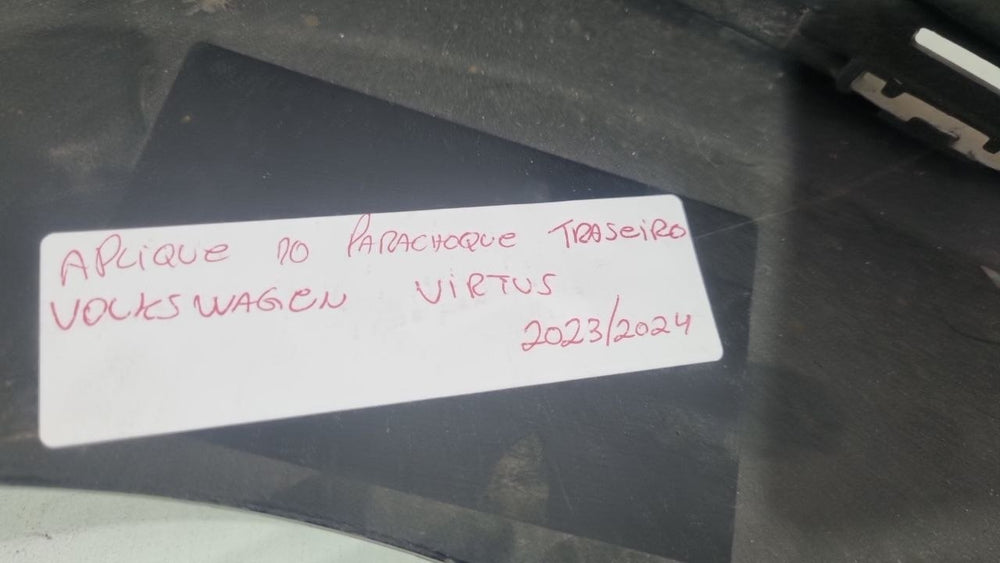 APLIQUE DO PARACHOQUE TRASEIRO
VOLKSWAGEN VIRTUS
2023/2024